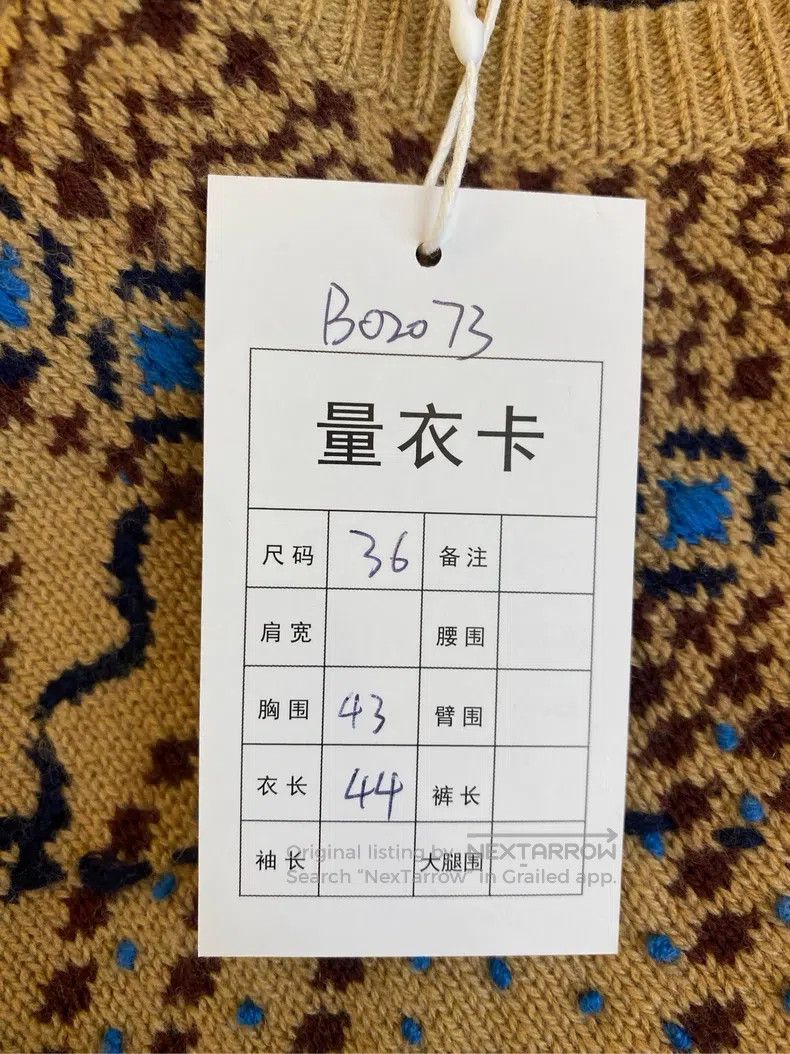 B02073
量衣卡
尺码 36 备注
肩宽 腰围
胸围 43 臂围
衣长 44 裤长
袖长 大腿围
Original listing by NEXTARROW
Search “NexTarrow” in Grailed app.